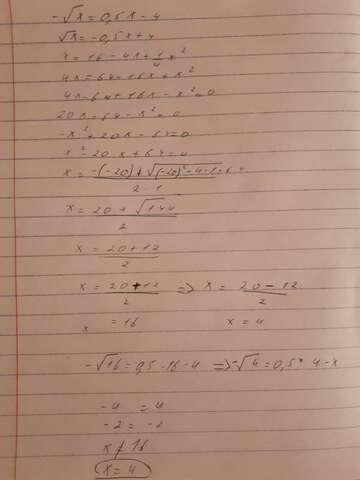 -√x = 0,5x - 4
√x = -0,5x + 4
x = 16 - 4x + 1/4 x²
4x = 64 - 16x + x²
4x - 64 + 16x - x² = 0
20x - 64 - x² = 0
-x² + 20x - 64 = 0
x² - 20x + 64 = 0
x = (-(-20) + √((-20)² - 4·1·64)) / (2·1)
x = (20 + √144) / 2
x = (20 + 12) / 2
x = (20 + 12) / 2 => x = (20 - 12) / 2
x = 16 x = 4
-√16 = 0,5·16 - 4 => -√4 = 0,5·4 - x
-4 = 4
-2 = -2
x ≠ 16
x = 4